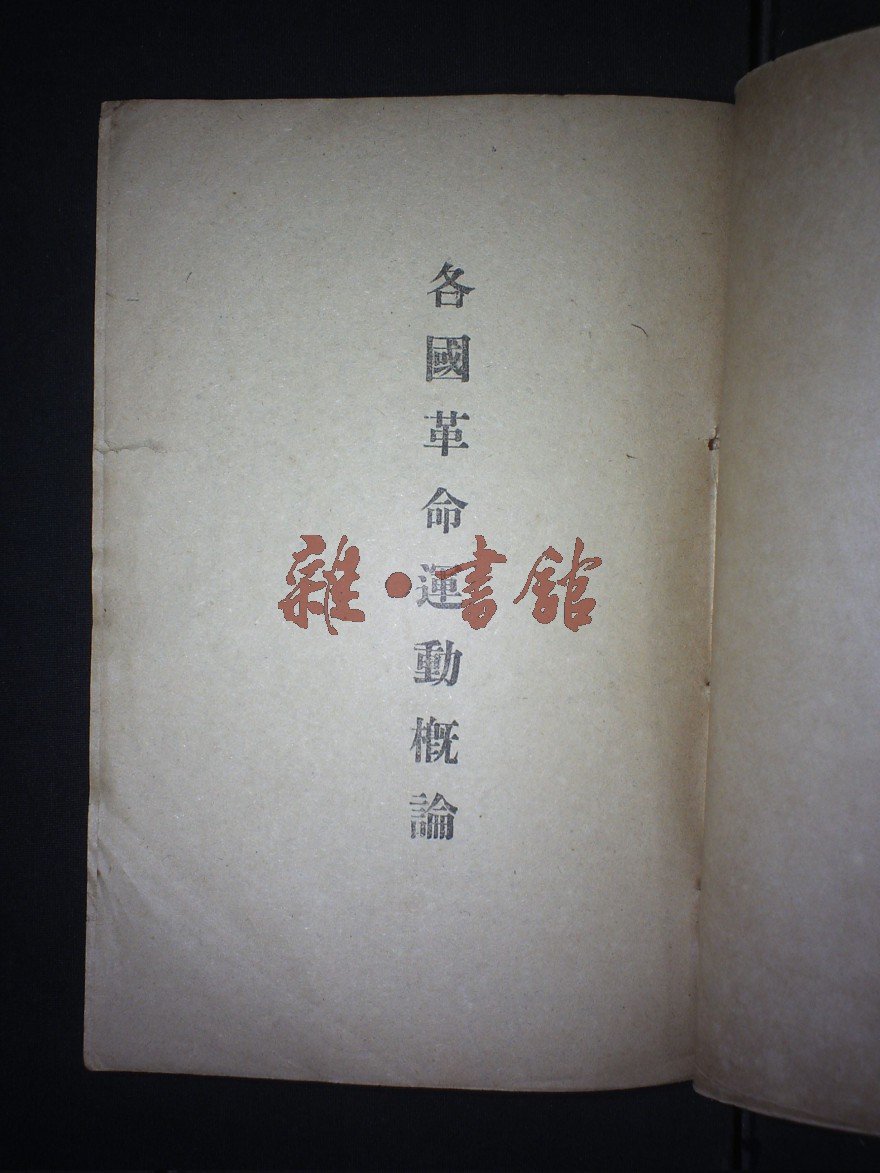 各國革命運動概論
雜·書館